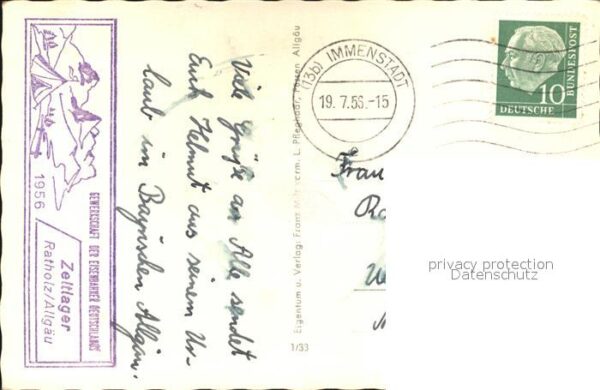 GEWERKSCHAFT DER EISENBAHNER DEUTSCHLANDS
1956
Zeltlager
Ratholz/Allgäu
Viele Grüße an Alle sendet
Euch Helmut aus seinem Ur-
laub im Bayrischen Allgäu.
Eigentum u. Verlag: Franz Milz vorm. L. Pfegndör, Füssen Allgäu
1/33
(13b) IMMENSTADT
19.7.56.-15
10
DEUTSCHE
BUNDESPOST
Frau
privacy protection
Datenschutz